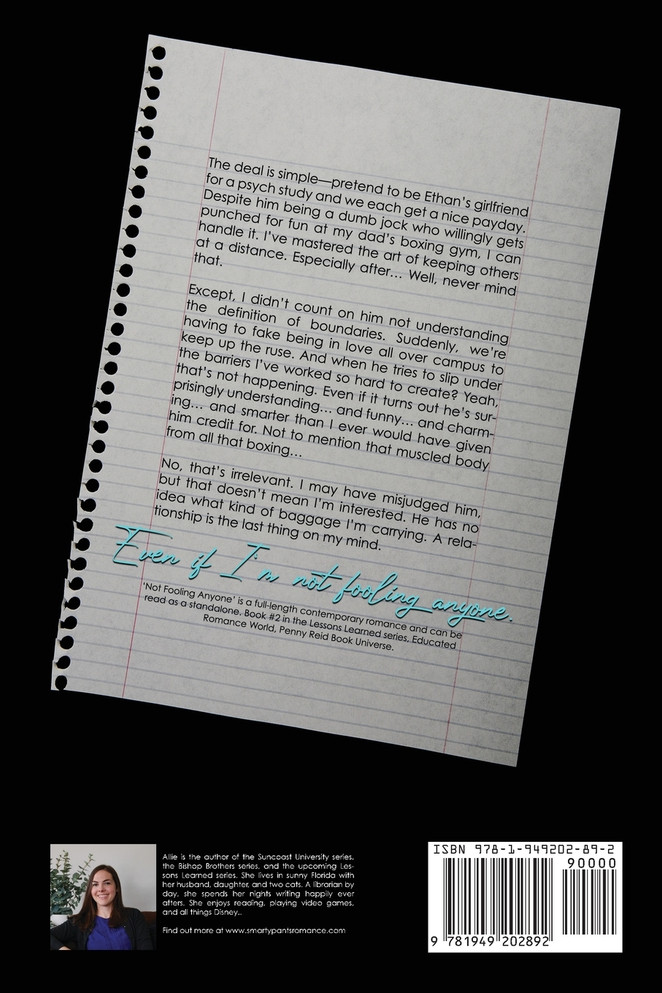 The deal is simple—pretend to be Ethan's girlfriend
for a psych study and we each get a nice payday.
Despite him being a dumb jock who willingly gets
punched for fun at my dad's boxing gym, I can
handle it. I've mastered the art of keeping others
at a distance. Especially after… Well, never mind
that.
Except, I didn't count on him not understanding
the definition of boundaries. Suddenly, we're
having to fake being in love all over campus to
keep up the ruse. And when he tries to slip under
the barriers I've worked so hard to create? Yeah,
that's not happening. Even if it turns out he's sur-
prisingly understanding… and funny… and charm-
ing… and smarter than I ever would have given
him credit for. Not to mention that muscled body
from all that boxing…
No, that's irrelevant. I may have misjudged him,
but that doesn't mean I'm interested. He has no
idea what kind of baggage I'm carrying. A rela-
tionship is the last thing on my mind.
Even if I'm not fooling anyone.
'Not Fooling Anyone' is a full-length contemporary romance and can be
read as a standalone. Book #2 in the Lessons Learned series, Educated
Romance World, Penny Reid Book Universe.
Allie is the author of the Suncoast University series,
the Bishop Brothers series, and the upcoming Les-
sons Learned series. She lives in sunny Florida with
her husband, daughter, and two cats. A librarian by
day, she spends her nights writing happily ever
afters. She enjoys reading, playing video games,
and all things Disney..
Find out more at www.smartypantsromance.com
ISBN 978-1-949202-89-2
90000
9 781949 202892